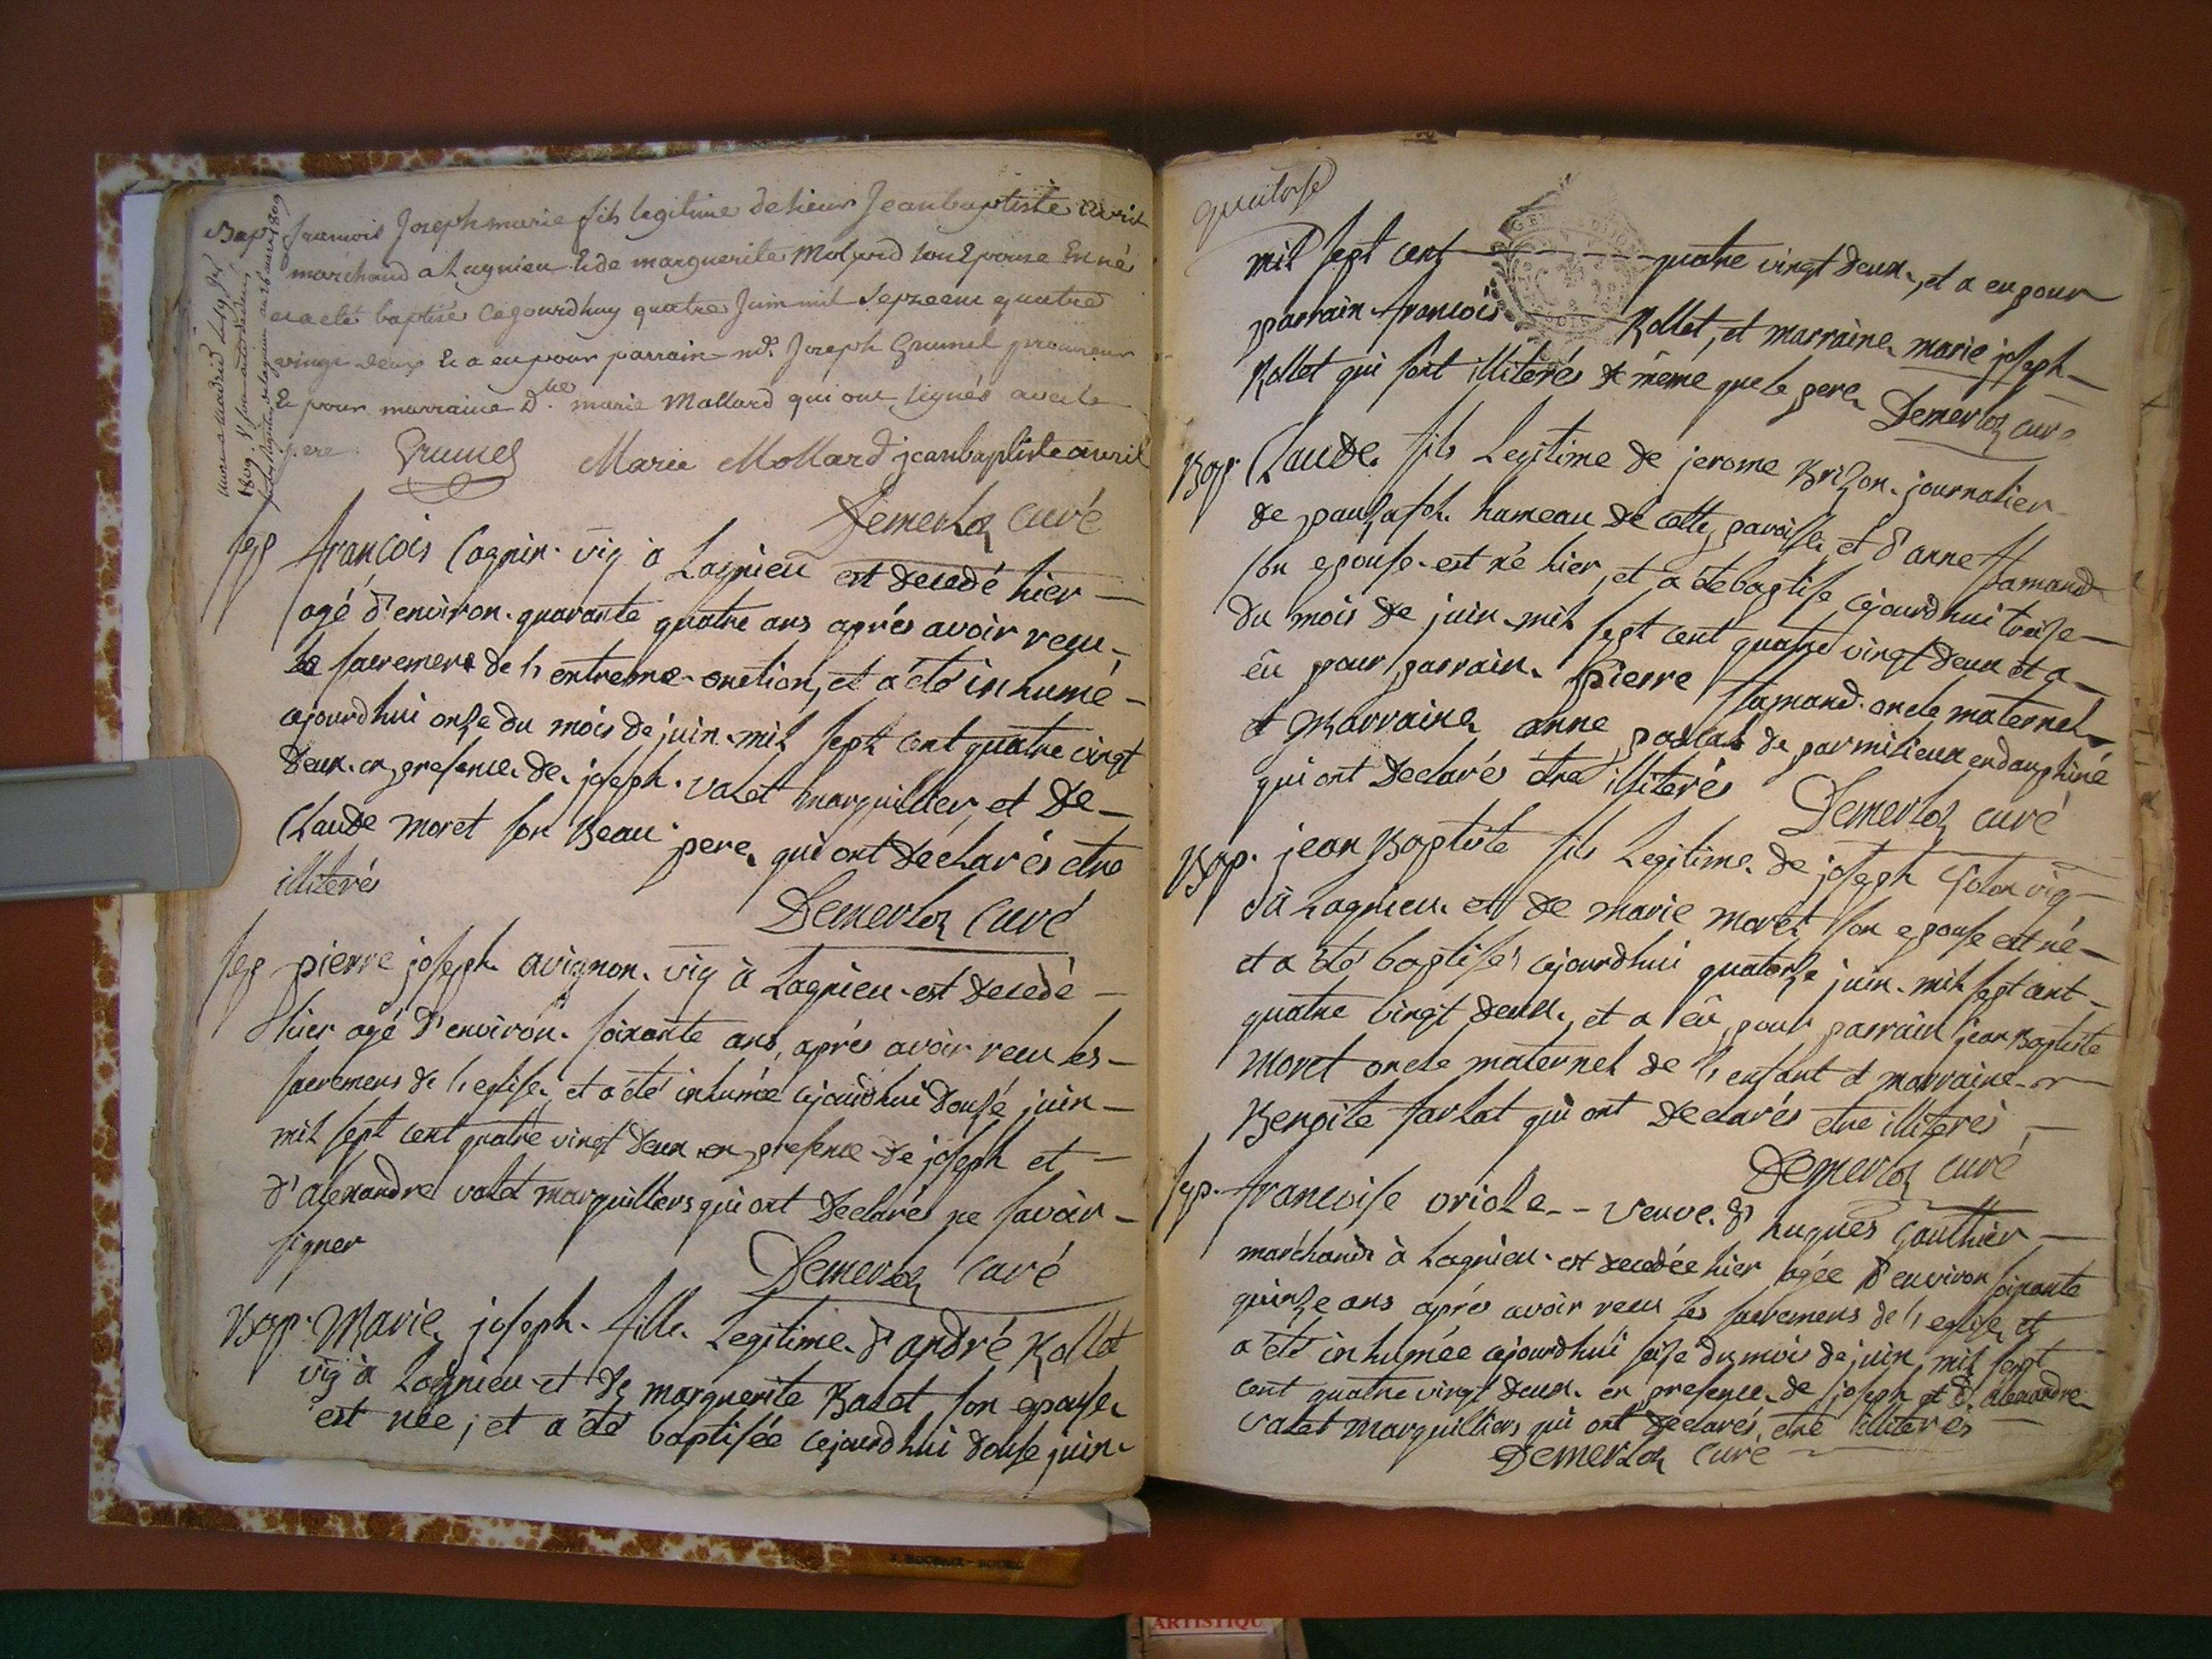 Bap françois Joseph marie fils legitime de sieur Jean baptiste avril
marchand a Lagnieu & de marguerite Molard son Epouse Est né
et a eté baptisé cejourdhuy quatre Juin mil sept cent quatre
vingt deux & a eu pour parrain mr. Joseph Grumel procureur
& pour marraine dlle marie Mollard qui ont signés avec le
pere Grumel Marie Mollard jean baptiste avril
Demerloz curé
1809
Sep françois Cognin vig à Lagnieu est decedé hier
agé d'environ quarante quatre ans aprés avoir recu
le sacrement de l'entreme onction, et a été inhumé
cejourd hui onze du mois de juin mil sept cent quatre vingt
deux en presence de joseph valet marguillier, et de
Claude moret son Beau pere qui ont declarés etre
illiterés
Demerloz Curé
Sep pierre joseph avignon vig à Lagnieu est decedé
hier agé d'environ soixante ans, aprés avoir recu les
sacremens de l'eglise, et a été inhumé cejourdhui douse juin
mil sept cent quatre vingt deux en presence de joseph et
d'alexandre valet marguilliers qui ont declarés ne savoir
signer
Demerloz Curé
Bap. Marie joseph fille Legitime d'andré Rollet
vig à Lagnieu et de marguerite Balet son epouse
est née, et a été baptisée cejourd hui douse juin
quatorse
mil sept cent quatre vingt deux, et a eu pour
parrain francois Rollet, et marraine marie joseph
Rollet qui sont illiterés de même que le pere Demerloz curé
Bap. Claude fils Legitime de jerome Brizon journalier
hameau de cette paroisse et d'anne flamand
son epouse est né hier, et a été baptisé cejourd hui treise
du mois de juin mil sept cent quatre vingt deux et a
eû pour parrain Pierre flamand oncle maternel
et Marraine anne de parmilieux en dauphiné
qui ont declarés être illiterés Demerloz curé
Bap. jean Baptiste fils Legitime de joseph vig
à Lagnieu et de marie moret son epouse est né
et a été baptisé cejourdhui quatorse juin mil sept cent
quatre vingt deux, et a eû pour parrain jean Baptiste
Moret oncle maternel de l'enfant et marraine
Benoite farlat qui ont declarés etre illiterés
Demerloz curé
Sep. francoise oriole veuve d'hugues Gauthier
marchand à Lagnieu est decedée hier agée d'environ soixante
quinze ans aprés avoir recu les sacremens de l'eglise, et
a été inhumée cejourdhui seise du mois de juin mil sept
cent quatre vingt deux en presence de joseph et d'alexandre
valet Marguilliers qui ont declarés etre illiterés
Demerloz Curé
ARTISTIQU